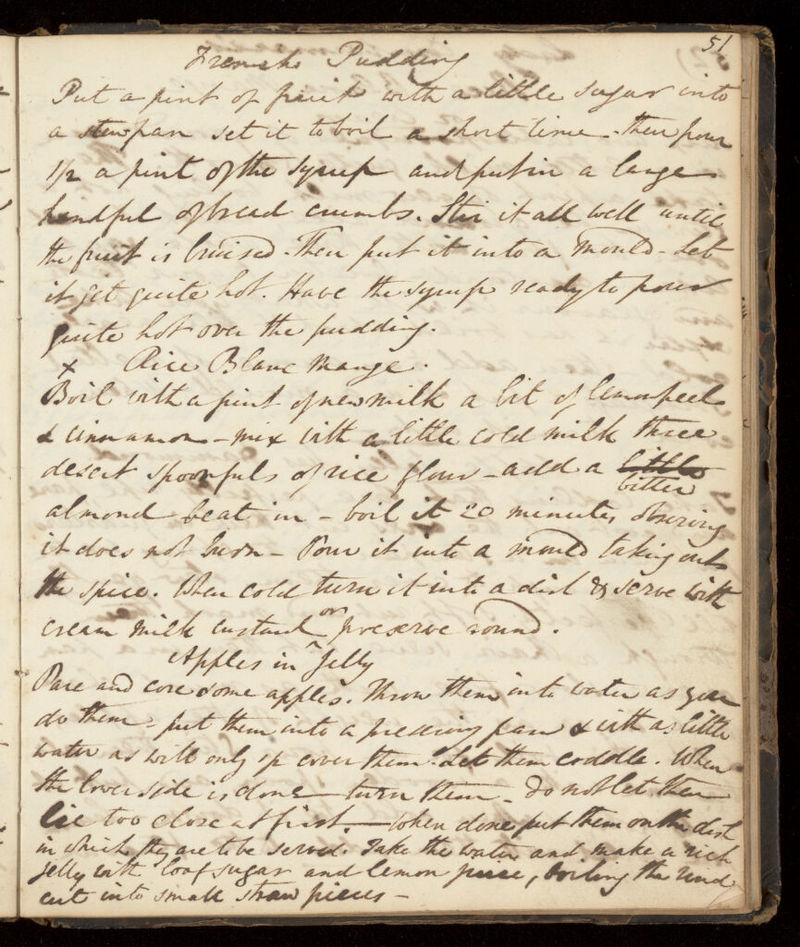 51
French Pudding
Put a pint of fruit with a little sugar into
a stewpan set it to boil a short time - then pour
1/2 a pint of the syrup and put in a large
handful of bread crumbs. Stir it all well until
the fruit is bruised. Then put it into a mould - Let
it get quite hot. Have the syrup ready to pour
quite hot over the pudding.
x Rice Blanc Mange.
Boil with a pint of new milk a bit of lemon peel
& cinnamon - mix with a little cold milk three
desert spoonfuls of rice flour - add a little
bitter
almond beat in - boil it 20 minutes observing
it does not burn - Pour it into a mould taking out
the spice. When cold turn it into a dish & serve with
cream milk custard or preserve round.
Apples in Jelly
Pare and core some apples. Throw them into water as you
do them - put them into a preserving pan & with as little
water as will only cover them. Let them coddle. When
the lower side is done turn them - do not let them
lie too close at first. - When done put them on the dish
in which they are to be served. Take the water and make a rich
jelly with loaf sugar and lemon juice, boiling the rind
cut into small straw pieces -